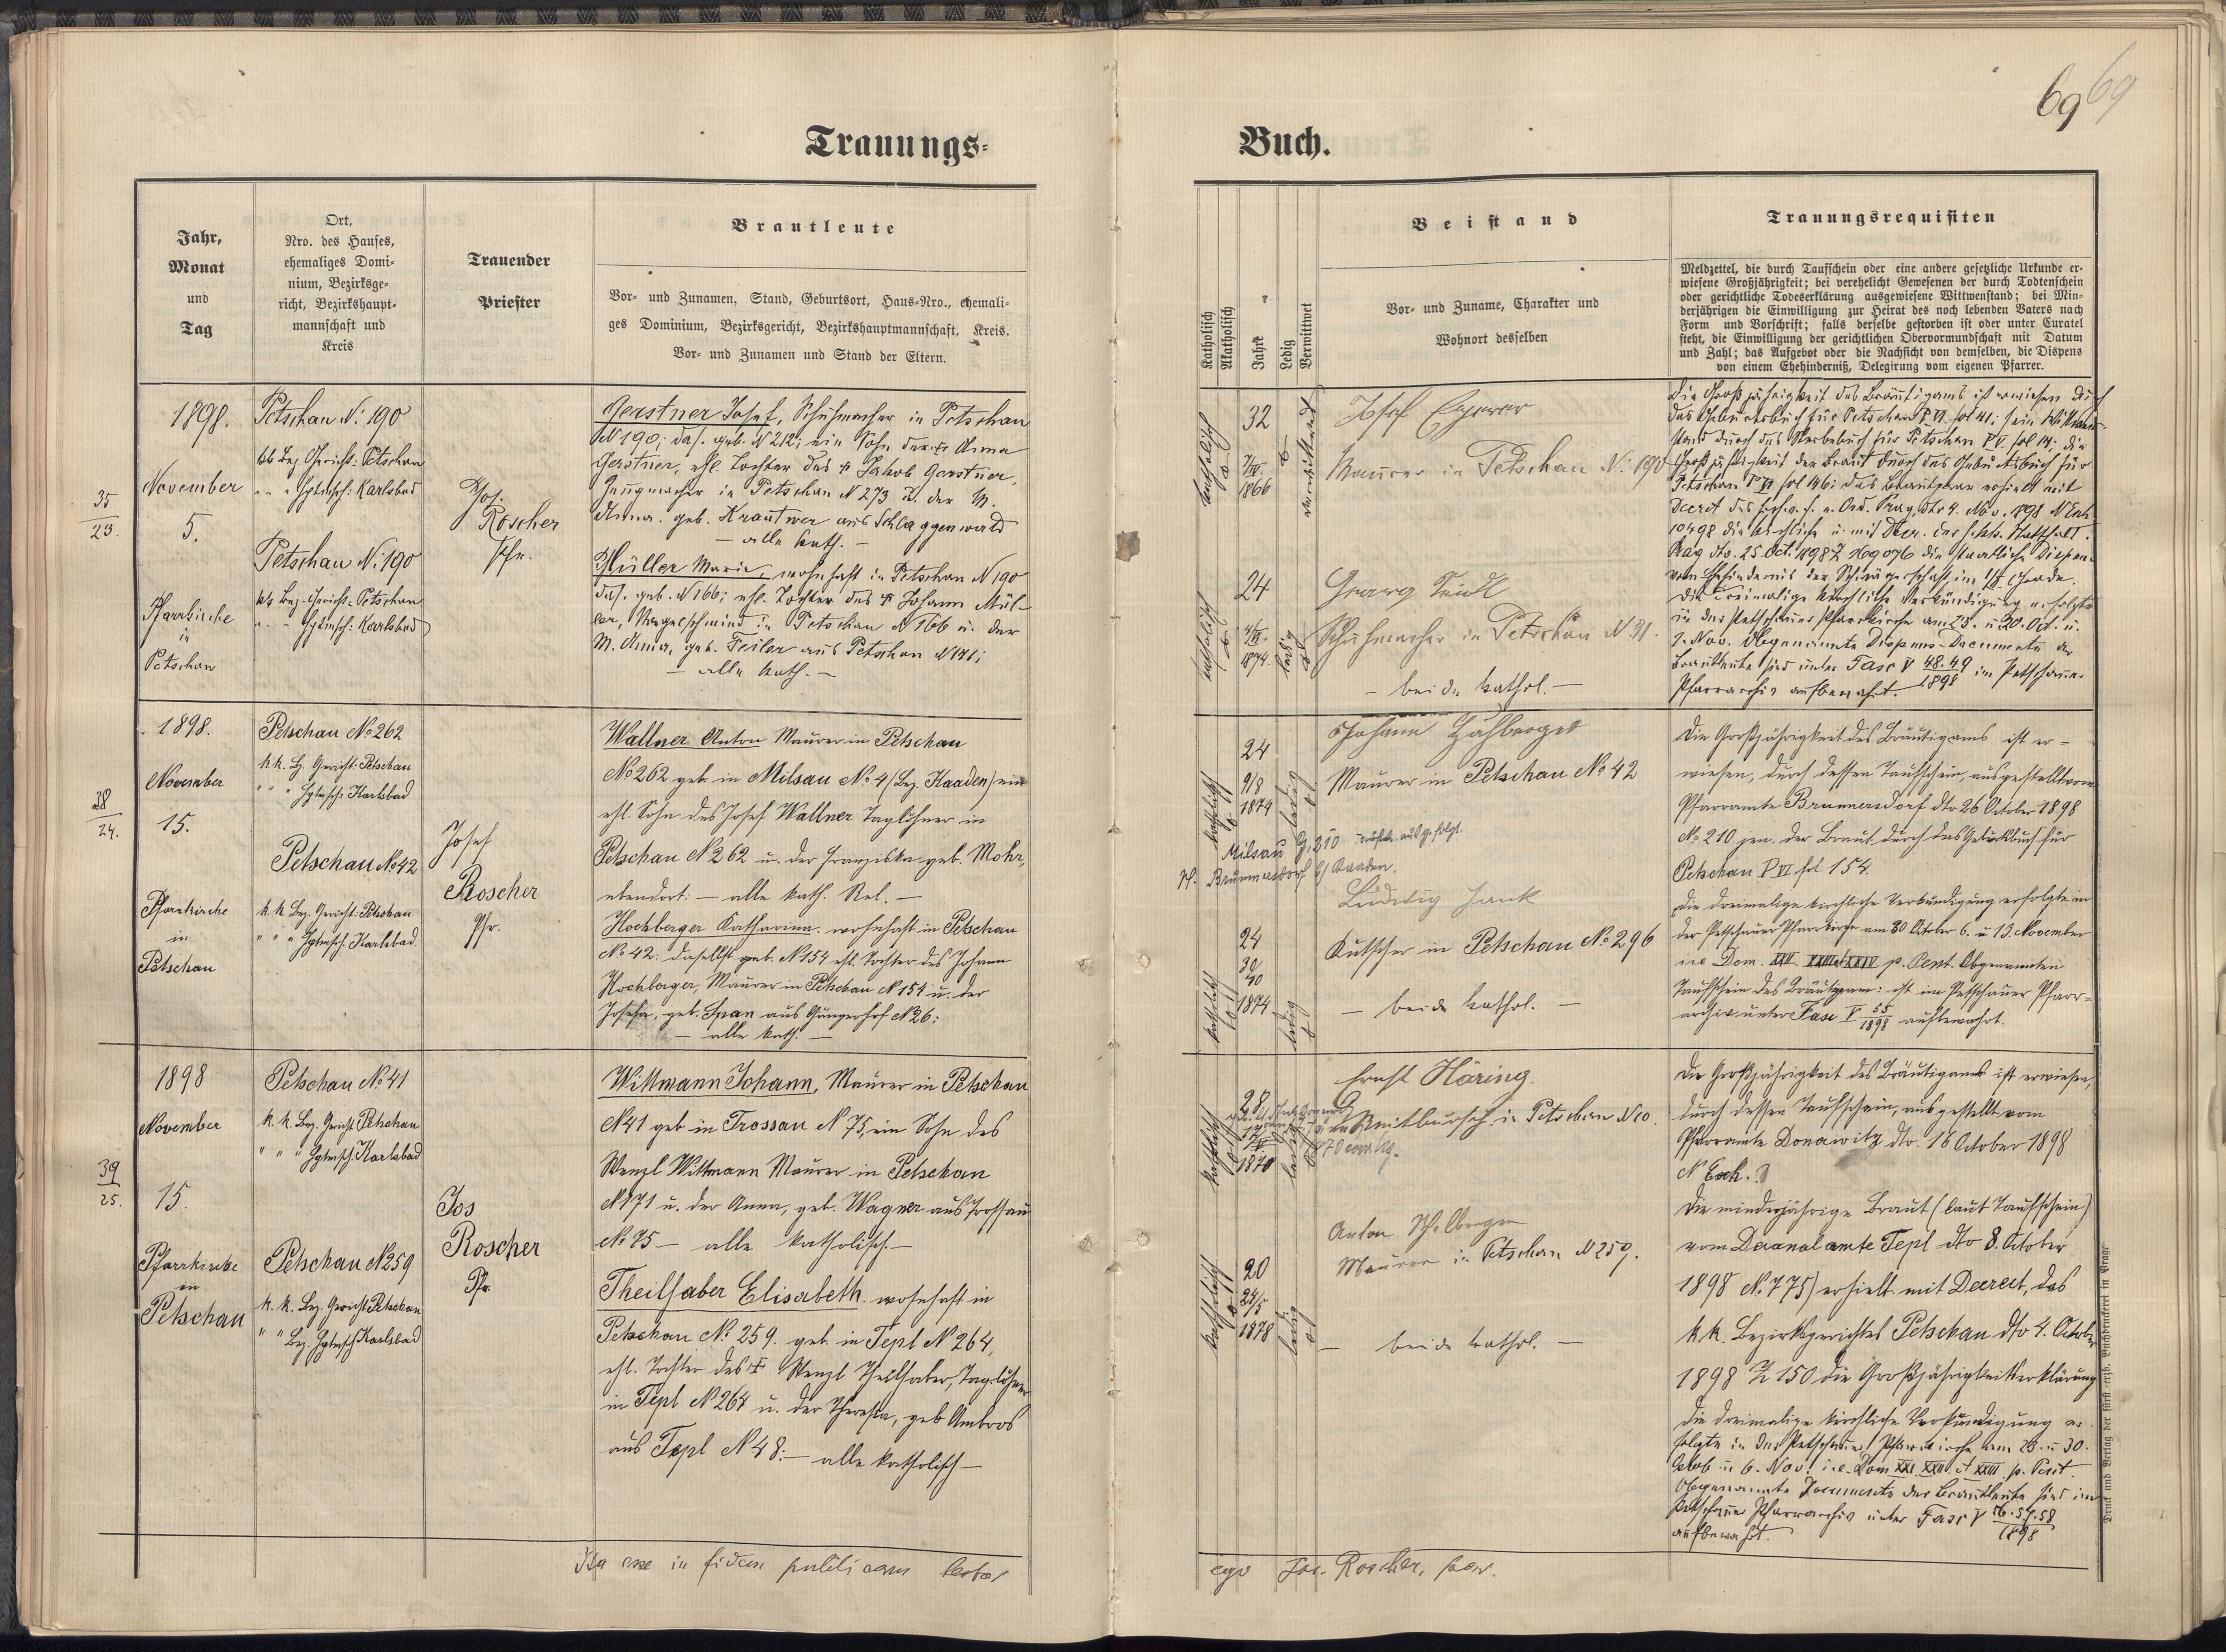 69 69
Trauungs-
Buch.
Jahr,
Monat
und
Tag
Ort,
Nro. des Hauses,
ehemaliges Domi-
nium, Bezirksge-
richt, Bezirkshaupt-
mannschaft und
Kreis
Trauender
Priester
Brautleute
Vor- und Zunamen, Stand, Geburtsort, Haus-Nro., ehemali-
ges Dominium, Bezirksgericht, Bezirkshauptmannschaft, Kreis.
Vor- und Zunamen und Stand der Eltern.
Katholisch
Akatholisch
Jahre
Ledig
Verwittwet
Beistand
Vor- und Zuname, Charakter und
Wohnort desselben
Trauungsrequisiten
Meldzettel, die durch Taufschein oder eine andere gesetzliche Urkunde er-
wiesene Großjährigkeit; bei verehelicht Gewesenen der durch Todtenschein
oder gerichtliche Todeserklärung ausgewiesene Wittwenstand; bei Min-
derjährigen die Einwilligung zur Heirat des noch lebenden Vaters nach
Form und Vorschrift; falls derselbe gestorben ist oder unter Curatel
steht, die Einwilligung der gerichtlichen Obervormundschaft mit Datum
und Zahl; das Aufgebot oder die Nachsicht von demselben, die Dispens
von einem Ehehinderniß, Delegirung vom eigenen Pfarrer.
35
23.
1898.
November
5.
Pfarrkirche
in
Petschau
Petschau N: 190
kk Bez. Gericht: Petschau
" " Hptmsch: Karlsbad
Petschau N: 190
kk Bez. Gericht: Petschau
" " Hptmsch: Karlsbad
Jos.
Roscher
Pfr.
Gerstner Josef, Schuhmacher in Petschau
N 190; das. geb. N 212; ein Sohn der † Anna
Gerstner, ehl. Tochter des † Jakob Gerstner,
Zeugmacher in Petschau N 273 u. der M.
Anna. geb. Krautwer aus Schlaggenwald
— alle kath. —
Müller Marie, wohnhaft in Petschau N 190
das. geb. N 166; ehl. Tochter des † Johann Mül-
ler, Nagelschmied in Petschau N 166 u. der
M. Anna, geb. Feiler aus Petschau N 141;
— alle kath. —
katholisch
32
7/IV.
1866
verwittwet
katholisch
24
4/IX.
1874.
ledig
Josef
Maurer in Petschau N: 190
Georg Seidl
Schuhmacher in Petschau N 31.
— beide kathol. —
Die Großjährigkeit des Bräutigams ist erwiesen durch
das Geburtsbuch für Petschau P VI fol 41; sein Wittwen-
stand durch das Sterbebuch für Petschau P V fol 14; die
Großjährigkeit der Braut durch das Geburtsbuch für
Petschau P VI fol 146; das Brautpaar erhielt mit
Decret des hochw. f. e. Ord. Prag dto 4. Nov. 1898 N Exh
10498 die kirchliche u. mit der k. k. Statthalt.
Prag dto. 25. Oct. 1898 Z 169076 die staatliche Dispen.
vom Ehehindernis der Schwägerschaft im Grade.
Die dreimalige kirchliche Verkündigung erfolgte
in der Petschauer Pfarrkirche am 23. u 30. Oct. u.
1. Nov. Obgenannte Dispens-Documente der
Brautleute sind unter Fasc V 48. 49 / 1898 im Petschauer
Pfarrarchiv aufbewahrt.
38
24.
1898.
November
15.
Pfarrkirche
in
Petschau
Petschau No 262
k k. Bz. Gericht: Petschau
" " " Hptmsch: Karlsbad
Petschau No 42
k. k Bez. Gericht: Petschau
" " " Hptmsch. Karlsbad.
Josef
Roscher
Pfr.
Wallner Anton Maurer in Petschau
No 262 geb. in Milsau No 4 (Bez. Kaaden) ein
ehl. Sohn des Josef Wallner Taglöhner in
Petschau N 262 u. der Franziska geb. Mohr,
ebendort: — alle kath. Rel. —
Hochberger Katharina. wohnhaft in Petschau
No 42: daselbst geb. N 154 ehl. Tochter des Johann
Hochberger, Maurer in Petschau N 154 u. der
Josefa, geb. Span aus Gängerhof N 26:
— alle kath. —
katholisch
24
9/8
1874
ledig
Milsau G. 210
Pf. Brunnersdorf b/ Kaaden.
katholisch
24
30/10
1874
ledig
Johann
Maurer in Petschau No 42
Ludwig Hank
Kutscher in Petschau No 296
— beide kathol. —
Die Großjährigkeit des Bräutigams ist er-
wiesen, durch dessen Taufschein, ausgestellt vom
Pfarramte Brunnersdorf dto 26 October 1898
No 210 jen. der Braut durch das Geburtsbuch für
Petschau P VI fol. 154.
Die dreimalige kirchliche Verkündigung erfolgte in
der Petschauer Pfarrkirche am 30 October 6. u 13. November
i. e Dom. XXII. XXIII et XXIV p. Pent. Obgenannten
Taufschein des Bräutigam: ist im Petschauer Pfarr-
archiv unter Fasc V 55 / 1898 aufbewahrt.
39
25.
1898
November
15.
Pfarrkirche
in
Petschau
Petschau No 41
k. k. Bez. Gericht Petschau
" " " Hptmsch: Karlsbad
Petschau N 259
k. k. Bez. Gericht Petschau
" " Bez. Hptmsch Karlsbad
Jos
Roscher
Pfr.
Wittmann Johann, Maurer in Petschau
N 41 geb in Trossau N 75, ein Sohn des
Wenzl Wittmann Maurer in Petschau
N 171 u. der Anna, geb. Wagner aus Trossau
No 75 — alle katholisch. —
Theilhaber Elisabeth. wohnhaft in
Petschau No 259. geb. in Tepl N 264,
ehl. Tochter des † Wenzl Theilhaber, Taglöhner
in Tepl N 264 u. der Theresia, geb Ambros
aus Tepl N 48: — alle katholisch —
katholisch
28
1870
ledig
katholisch
20
24/5
1878
ledig
Ernst Häring.
in Petschau N 10.
Anton
Maurer in Petschau N 259.
— beide kathol. —
Die Großjährigkeit des Bräutigams ist erwiesen,
durch dessen Taufschein, ausgestellt vom
Pfarramte Donawitz dto. 16 October 1898
N Exh.
Die minderjährige Braut (laut Taufschein)
vom Decanalamte Tepl dto 8. October
1898 No 775) erhielt mit Decret, das
k. k. Bezirksgerichtes Petschau dto 4. October
1898 Z 150 die Großjährigkeitserklärung
Die dreimalige kirchliche Verkündigung er-
folgte in der Petschauer Pfarrkirche am 23. u 30.
Octob u 6. Nov. i. e. Dom XXI. XXII. et XXIII p. Pent.
Obgenannte Documente der Brautleute sind im
Petschauer Pfarrarchiv unter Fasc V 56. 57. 58 / 1898
aufbewahrt.
Ita esse in fidem publicam testor
ego Jos. Roscher, par.
Druck und Verlag der fürst erzb. Buchdruckerei in Prag.